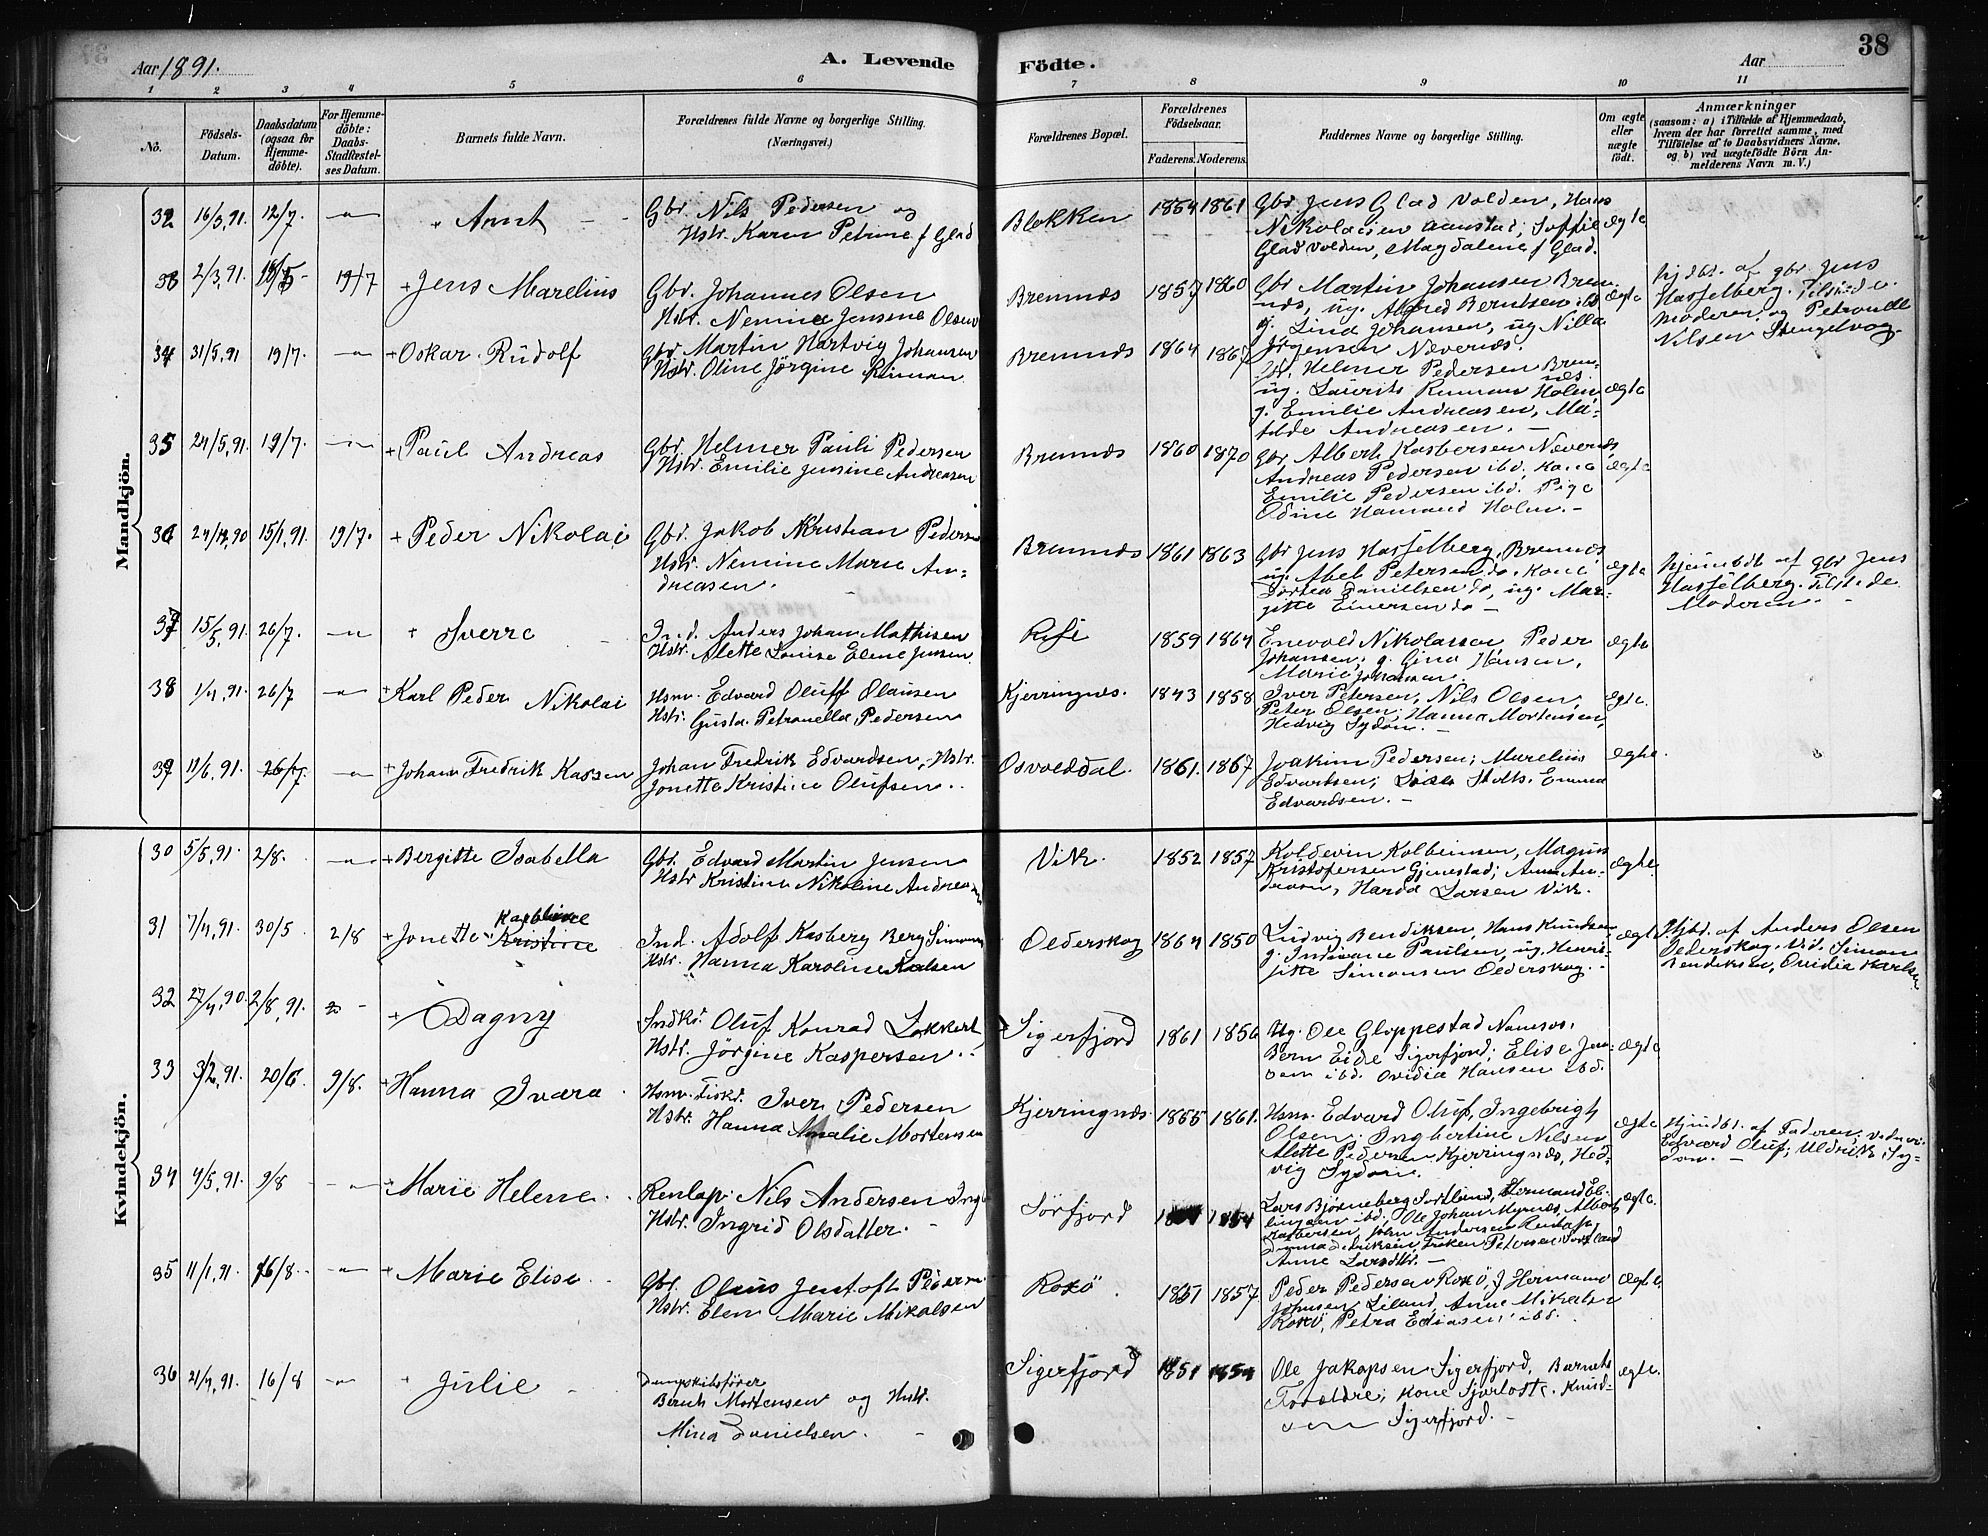 Aar 1891.
A. Levende
Födte.
Aar
38
1 2 3 4 5 6 7 8 9 10 11
No.
Födsels-Datum.
Daabsdatum (ogsaa for Hjemmedöbte).
For Hjemmedöbte: Daabs-Stadfæstelses Datum.
Barnets fulde Navn.
Forældrenes fulde Navne og borgerlige Stilling. (Næringsvei.)
Forældrenes Bopæl.
Forældrenes Födselsaar.
Faderens. Moderens.
Faddernes Navne og borgerlige Stilling.
Om ægte eller uægte födt.
Anmærkninger
(saasom: a) i Tilfælde af Hjemmedaab, hvem der har forrettet samme, med Tilföielse af to Daabsvidners Navne, og b) ved uægtefödte Börn Anmelderens Navn m. V.)
Mandkjön.
32 16/3,91. 12/7. -"- + Arnt
Gbr. Nils Pedersen og
Hstr. Karen Petrine f Glad
Blokken 1854 1861
Gbr Jens Glad Volden, Hans
Nikolaisen Aanstad; Soffie
Glad Volden, Magdalene f Glad.
ægte
33 2/3,91. 18/5- 19/7 + Jens Marelius
Gbr. Johannes Olsen
Hstr. Nemine Jensine Olsen
Bremnæs 1857 1860
Gbr Martin Johansen Brem-
næs, ug. Alfred Berntsen ibd
g. Lina Johansen, ug Nilla
Jörgensen Nævernæs.
ægte
hjdbt. af gbr. Jens
Hasselberg. Tilstede.
Moderen og Petronelle
Nilsen Stengelvaag.
34 31/5,91 19/7. -"- + Oskar Rudolf
Gbr. Martin Hartvig Johansen
Hstr. Oline Jörgine
Bremnæs 1864 1867
Gbr. Helmer Pedersen Brem-
næs.
ug. Laurits Holm
g. Emilie Andreasen, Ma-
tilde Andreasen. -
ægte
35 24/5,91 19/7. -"- + Paul Andreas
Gbr. Helmer Pauli Pedersen
Hstr. Emilie Jensine Andreasen
Bremnæs 1860 1870
Gbr. Albert Kasbersen Nevernæs,
Andreas Pedersen ibd. Kone
Emilie Pedersen ibd. Pige
Odine Holm. -
ægte
36 24/12,90 15/1,91. 19/7. + Peder Nikolai
Gbr. Jakob Kristian Pedersen
Hstr. Nemine Marie An-
dreasen.
Bremnæs 1861 1863
Gbr Jens Hasselberg, Bremnæs,
ug. Abel Petersen do. Kone
Dortea Danielsen do, ug. Mar-
jitte Einersen do -
ægte
hjembdt af gbr Jens
Hasselberg. Tilstede
Moderen. -
37 15/5,91. 26/7. -"- + Sverre
Ind. Anders Johan Mathisen
Hstr. Alette Louise Elene Jensen
1859 1864
Enevold Nikolaisen Peder
Johansen, g. Gina Hansen,
Marie Johansen.
ægte
38 1/4,91. 26/7 -"- + Karl Peder Nikolai
Hsm. Edvard Oluff Olausen
Hstr. Gusta Petronella Pedersen
Kjerringnæs. 1843 1858
Iver Petersen, Nils Olsen,
Peter Olsen, Hanna Mortensen,
Hedvig Sydon. -
ægte.
39 11/6,91. 26/7. -"- + Johan Fredrik Kassen
Johan Fredrik Edvardsen, Hstr.
Jonette Kristine Olufsen.
Osvolddal. 1861. 1867
Joakim Pedersen; Marelius
Edvartsen; Stolts. Emma
Edvardsen. -
ægte.
Kvindekjön.
30 5/5,91. 2/8. -"- + Bergitte Isabella
Gbr. Edvard Martin Jensen
Hstr Kristine Nikoline Andreasen
Vik. 1852 1857
Koldevin Kolbeinsen, Magnus
Kristofersen Gjenestad; Anna An-
dreasen, Larsen Vik.
ægte
31 7/4,91. 30/5 2/8 + Jonette Karoline Kristine
Ind. Adolf Kasberg Berg Simonsen
Hstr. Hanna Karoline Karlsen
Oederskog 1864 1850
Ludvig Bendiksen, Hans Knudsen
g. Indiane Paulsen, ug. Henri-
jitte Simonsen Oederskog. -
ægte
Hjbd. af Anders Olsen
Oederskog. Vid. Simon
Bendiksen, Ovidia Karlsen
32 27/4,90. 2/8,91. + Dagny
Sndkr. Oluf Konrad Lokkert
Hstr. Jörgine Kaspersen.
Sigerfjord 1861 1856
Ug. Ole Gloppestad Namsos.
Bern Eide Sigerfjord; Elise Jen-
sen ibd. Ovidia Hansen ibd.
ægte
33 3/2,91. 20/6 9/8. + Hanna Ivara
Hsm. Fiskr. Iver Pedersen
Hstr. Hanna Amalie Mortensen
Kjerringnæs. 1855 1861.
Hsm. Edvard Oluf, Ingebrigt
Olsen; Ingbertine Nilsen
Alette Pedersen Kjerringnæs, Hed-
vig Sydon.
ægte
Hjmdbt. af Faderen, vidner
Edvard Oluf; Uldrik Sy-
don. -
34 4/5,91. 9/8 -"- + Marie Helene.
Renlap. Nils Andersen
Hstr. Ingrid Olsdatter. -
Sörfjord 1854
Lars Bjørneberg Sortland, Hermand El-
lingsen ibd; Ole Johan
John Andersen Renlap,
Fröken Petersen Sortland
Anne Larsdtr. -
ægte.
35 11/1,91. 16/8.- -"- + Marie Elise.
Gbr. Olaus Jentoft Pedersen
Hstr. Elen Marie Mikalsen
Roksö. 1851 1857.
Peder Pedersen Roksö, J Hermand
Johnsen Liland, Anne Mikalsen
Roksö, Petra Ediasen ibd.
ægte.
36 21/4,91. 16/8 -"- + Julie
Dampskibsfører
Bernt Mortensen og Hstr.
Mina Danielsen. -
Sigerfjord 1851 1854
Ole Jakopsen Sigerfjord, Barnets
Forældre; Kone Knud-
sen Sigerfjord. -
ægte.